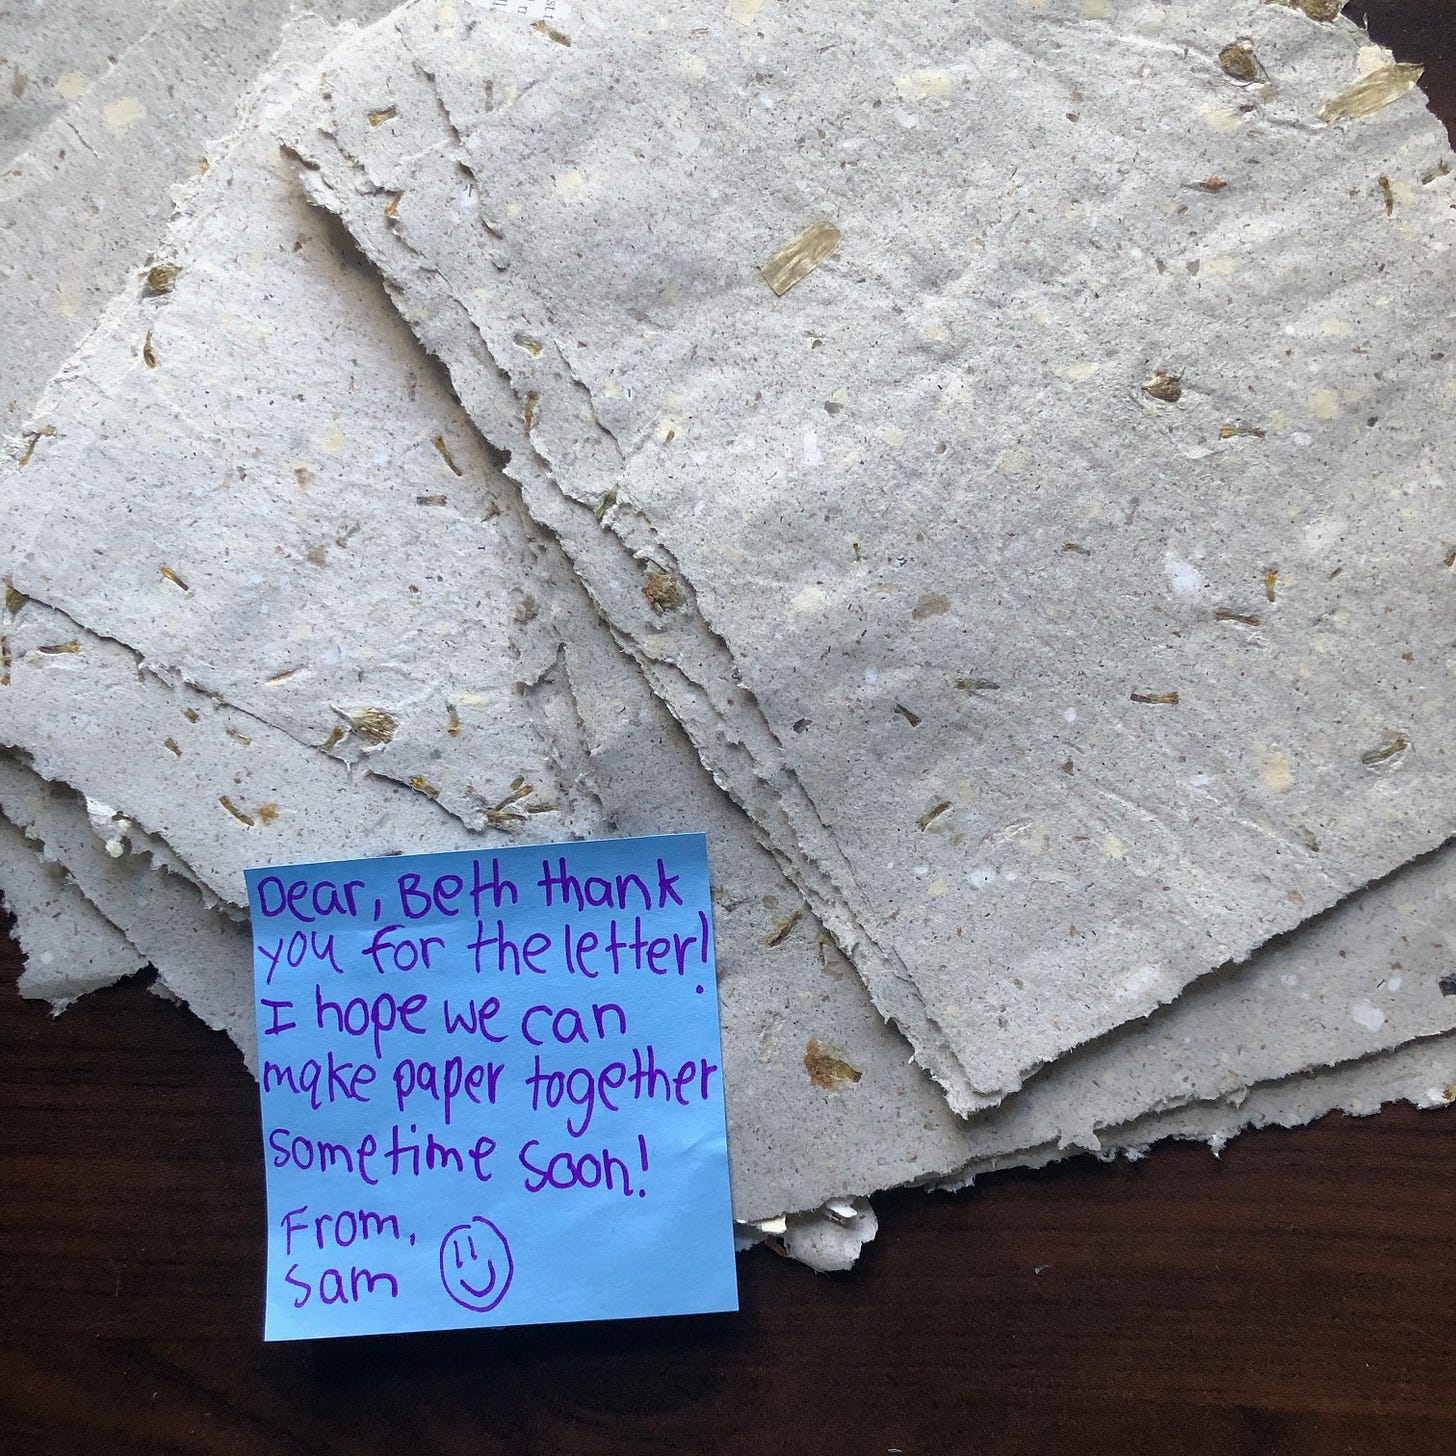 Dear, Beth thank
you for the letter!
I hope we can
make paper together
sometime soon!
From,
Sam